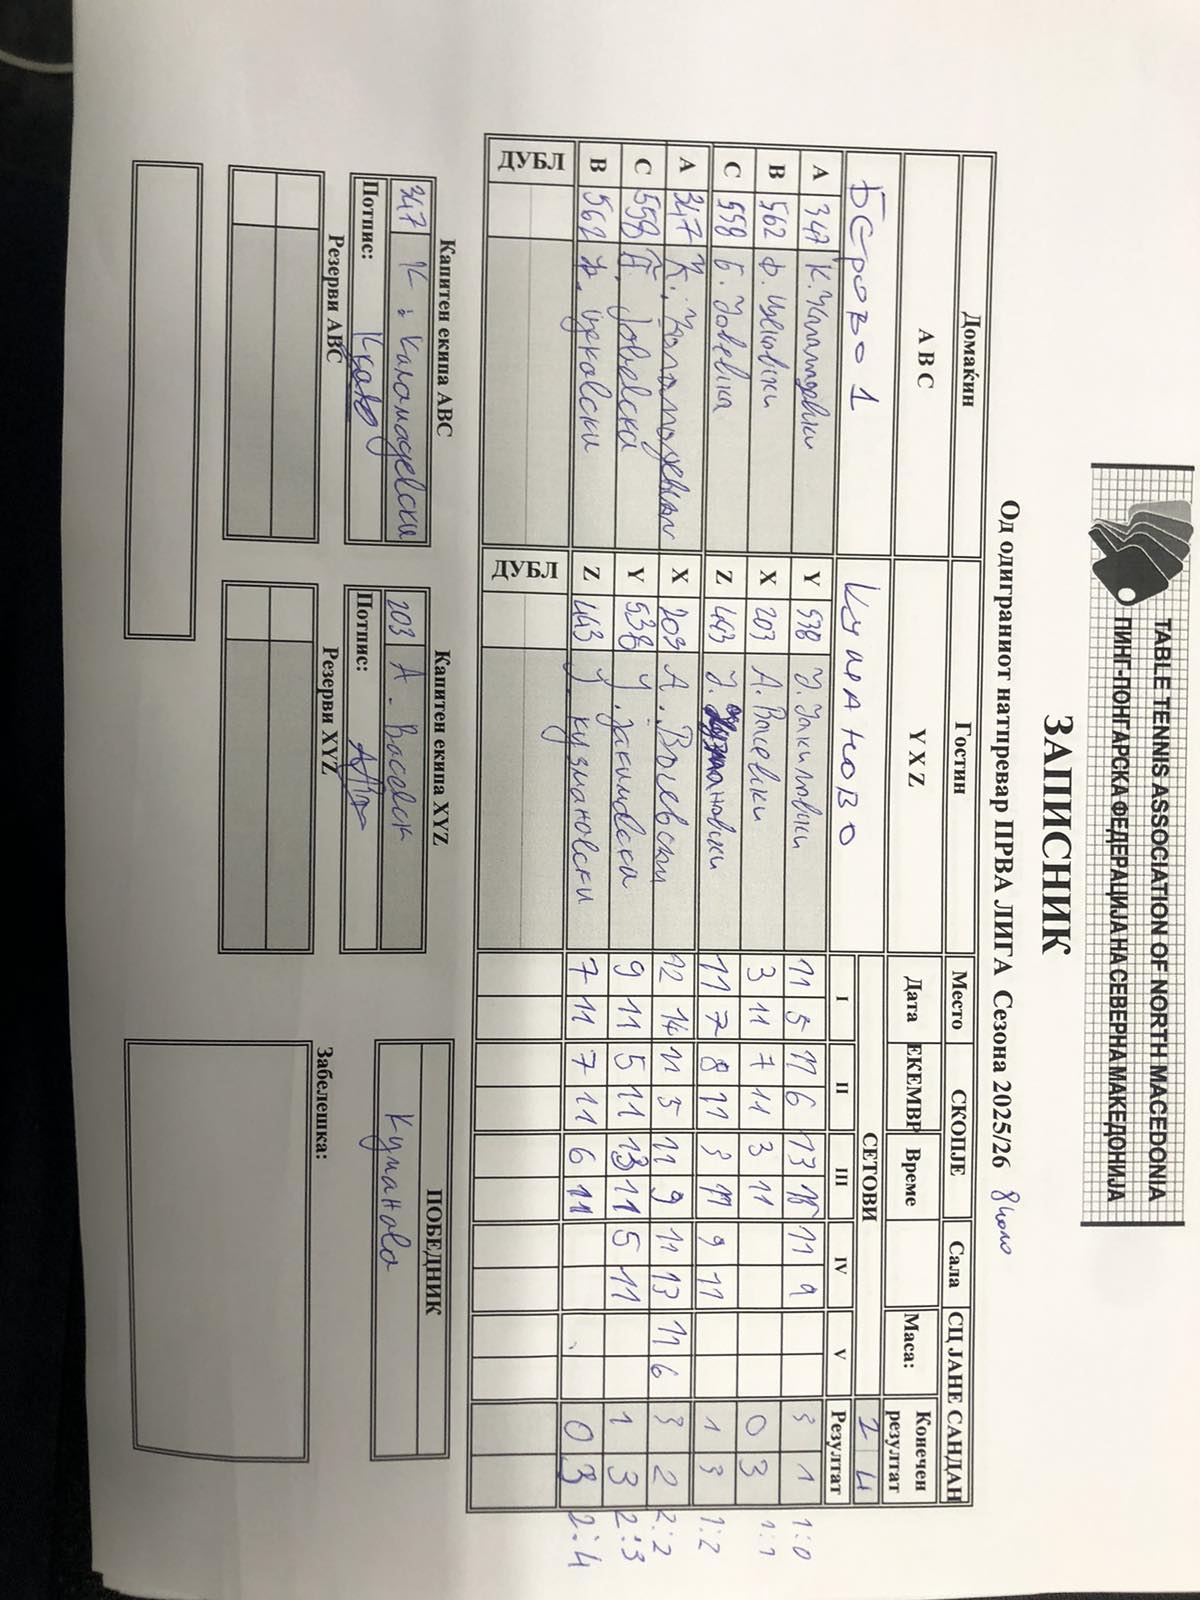 TABLE TENNIS ASSOCIATION OF NORTH MACEDONIA
ПИНГ-ПОНГАРСКА ФЕДЕРАЦИЈА НА СЕВЕРНА МАКЕДОНИЈА
ЗАПИСНИК
Од одиграниот натпревар ПРВА ЛИГА Сезона 2025/26 8 коло
Домаќин Гостин Место СКОПЈЕ Сала СЦ ЈАНЕ САНДАН
A B C Y X Z Дата ЕКЕМВР Време Маса: Конечен резултат
БЕрово 1 Куманово СЕТОВИ 2 4
I II III IV V Резултат
A 347 К. Y 538 Ј. 11 5 11 6 13 15 11 9 3 1 1:0
B 562 Ф. Цековски X 203 А. Васевски 3 11 7 11 3 11 0 3 1:1
C 558 Б. Јовевска Z 443 Ј. 11 7 8 11 3 11 9 11 1 3 1:2
A 347 К. X 203 А. Васевски 12 14 11 5 11 9 11 13 11 6 3 2 2:2
C 558 Б. Јовевска Y 538 Ј. Јакимовска 9 11 5 11 13 11 5 11 1 3 2:3
B 562 Ф. Цековски Z 443 Ј. Кузмановски 7 11 7 11 6 11 0 3 2:4
ДУБЛ ДУБЛ
Капитен екипа ABC Капитен екипа XYZ ПОБЕДНИК
347 К. Каламадевски 203 А. Васевск Куманово
Потпис: Потпис:
Резерви ABC Резерви XYZ Забелешка: